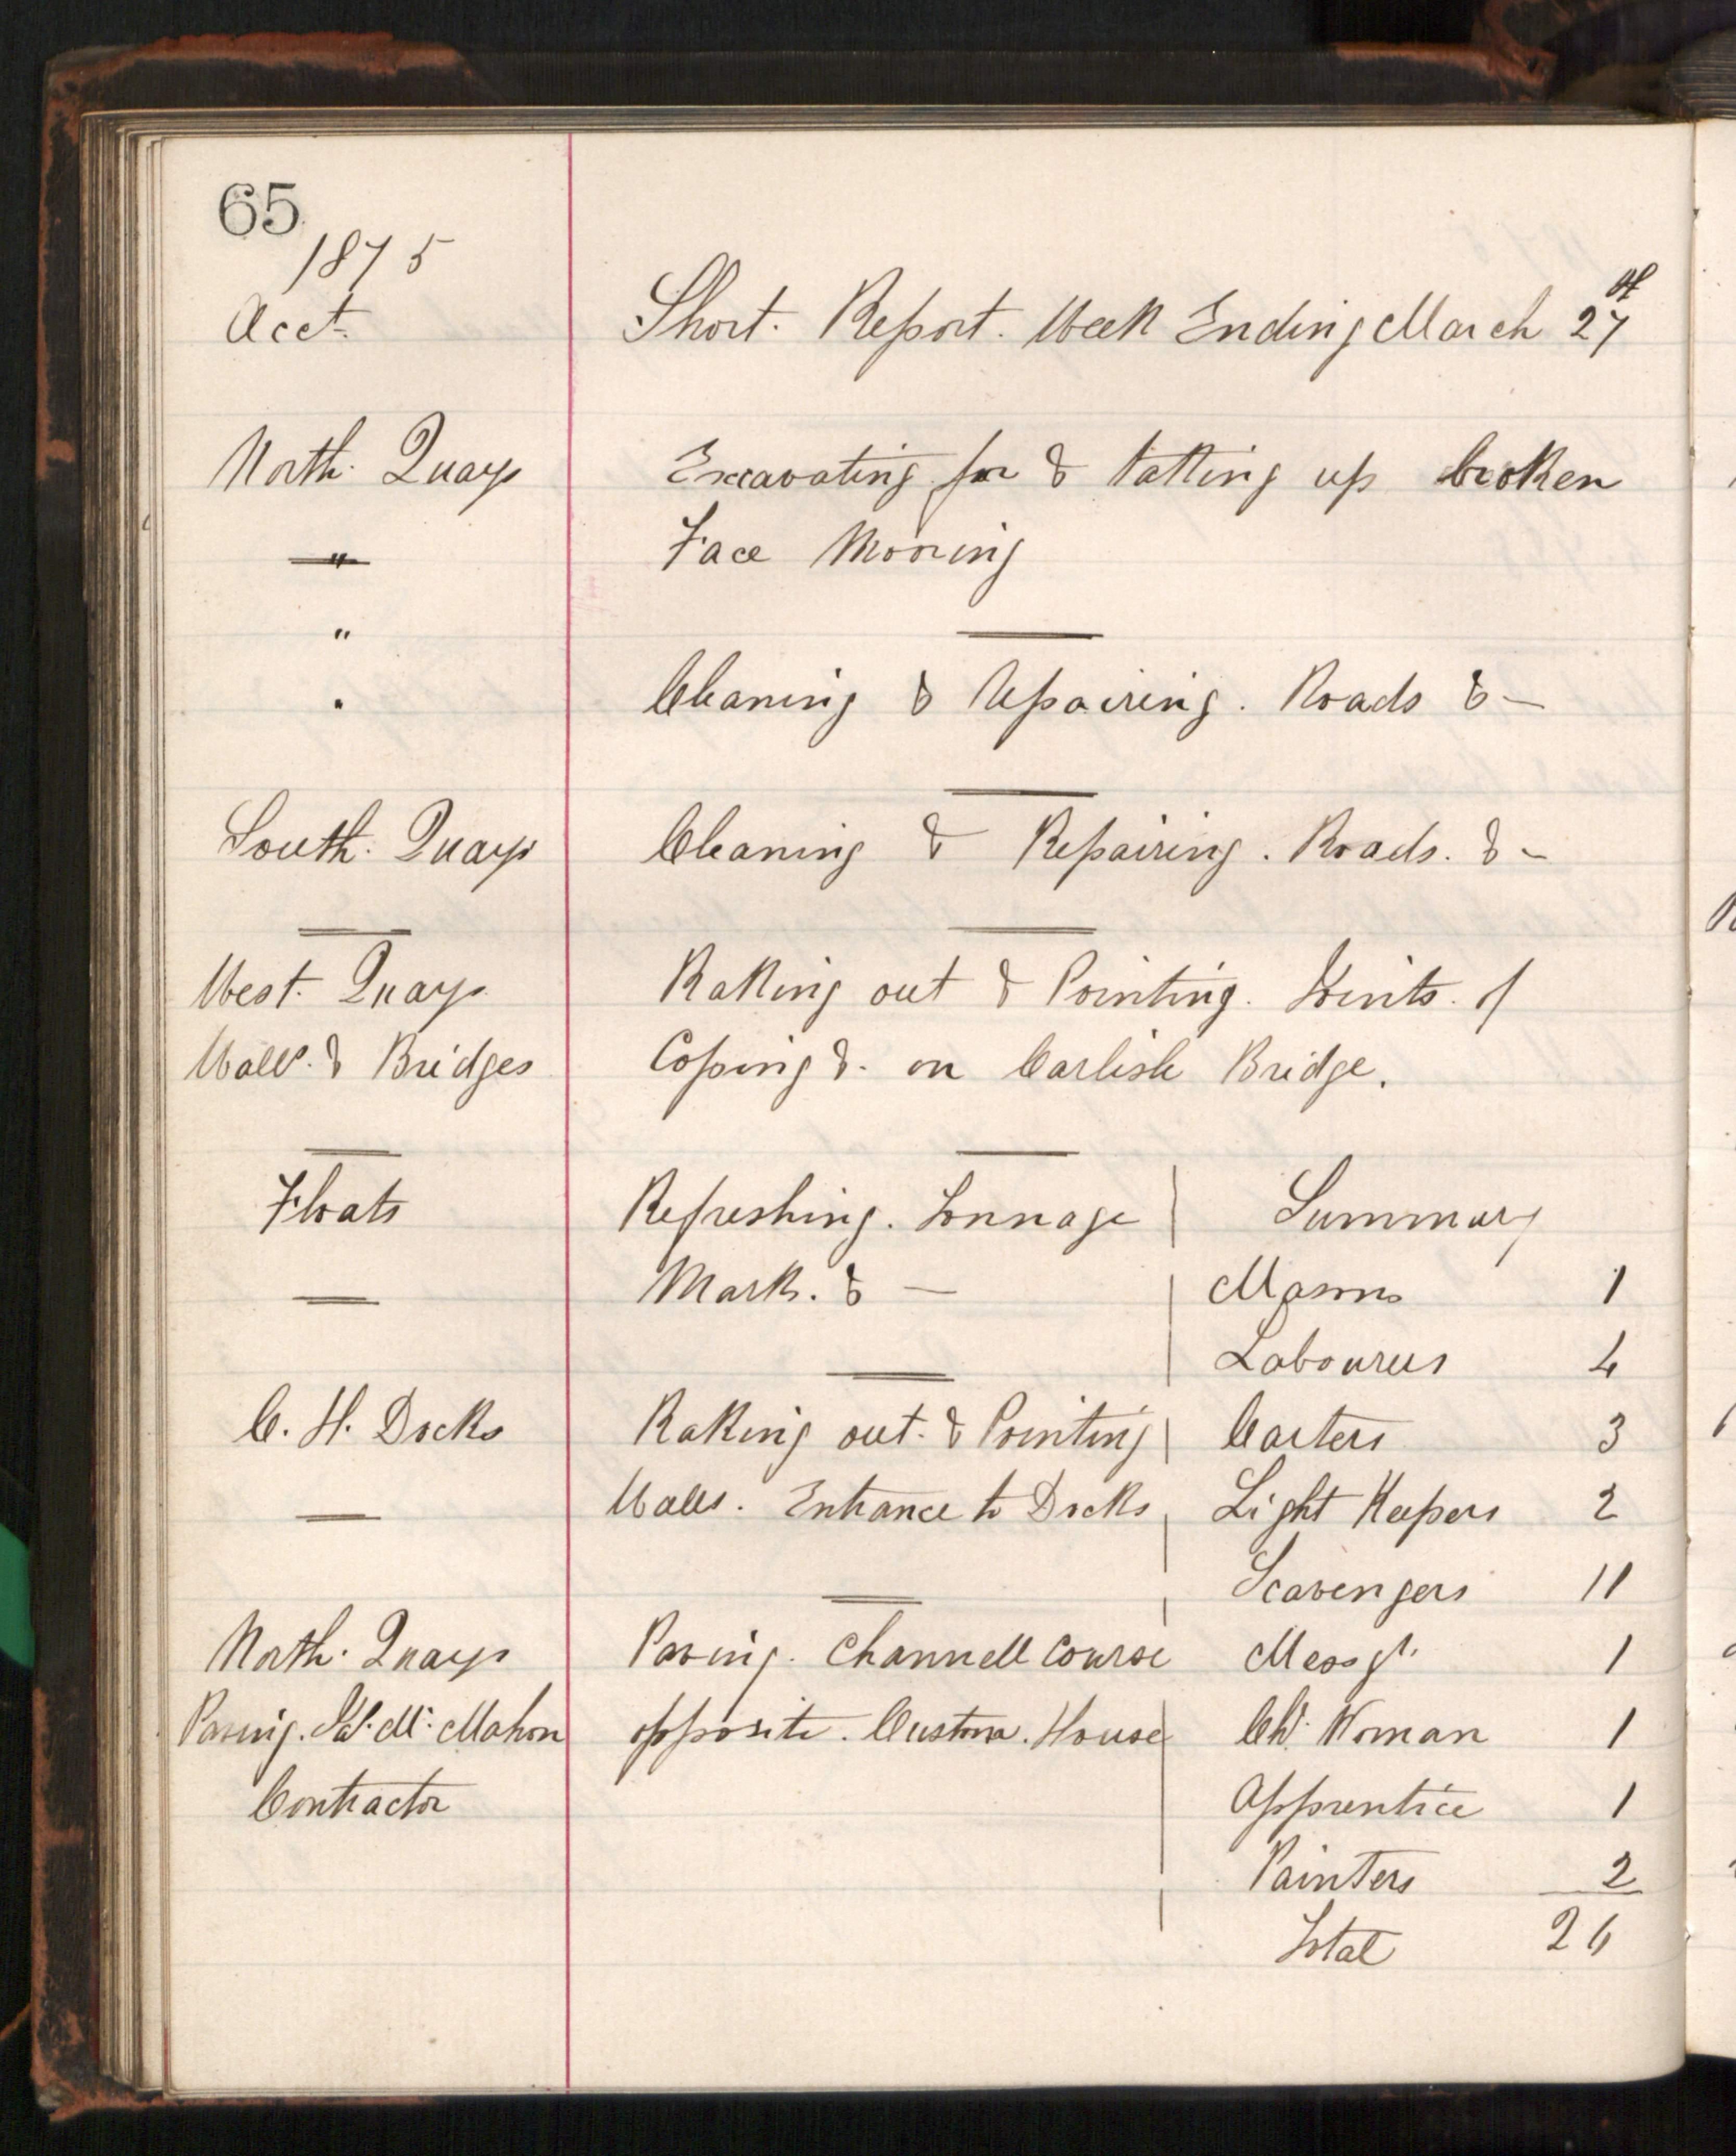 65
1875
Acct. Short. Report. Week Ending March 27th
North. Quays Excavating for & takking up broken
" Face Mooring
"
" Cleaning & Repairing. Roads & —
South. Quays Cleaning & Repairing. Roads. & —
West. Quays Rakking out & Pointing. Joints. of
Walls. & Bridges Coping &. on Carlisle Bridge.
Floats Refreshing. Tonnage Summary
Mark. & — Masons 1
Labourers 4
C. H. Docks Rakking out. & Pointing Carters 3
Walls. Entrance to Docks Light Keepers 2
Scavengers 11
North. Quays Paving. Channell Course Messgr. 1
Paving. Mc. Mahon opposite. Custom. House Chr. Woman 1
Contractor Apprentice 1
Painters 2
Total 26